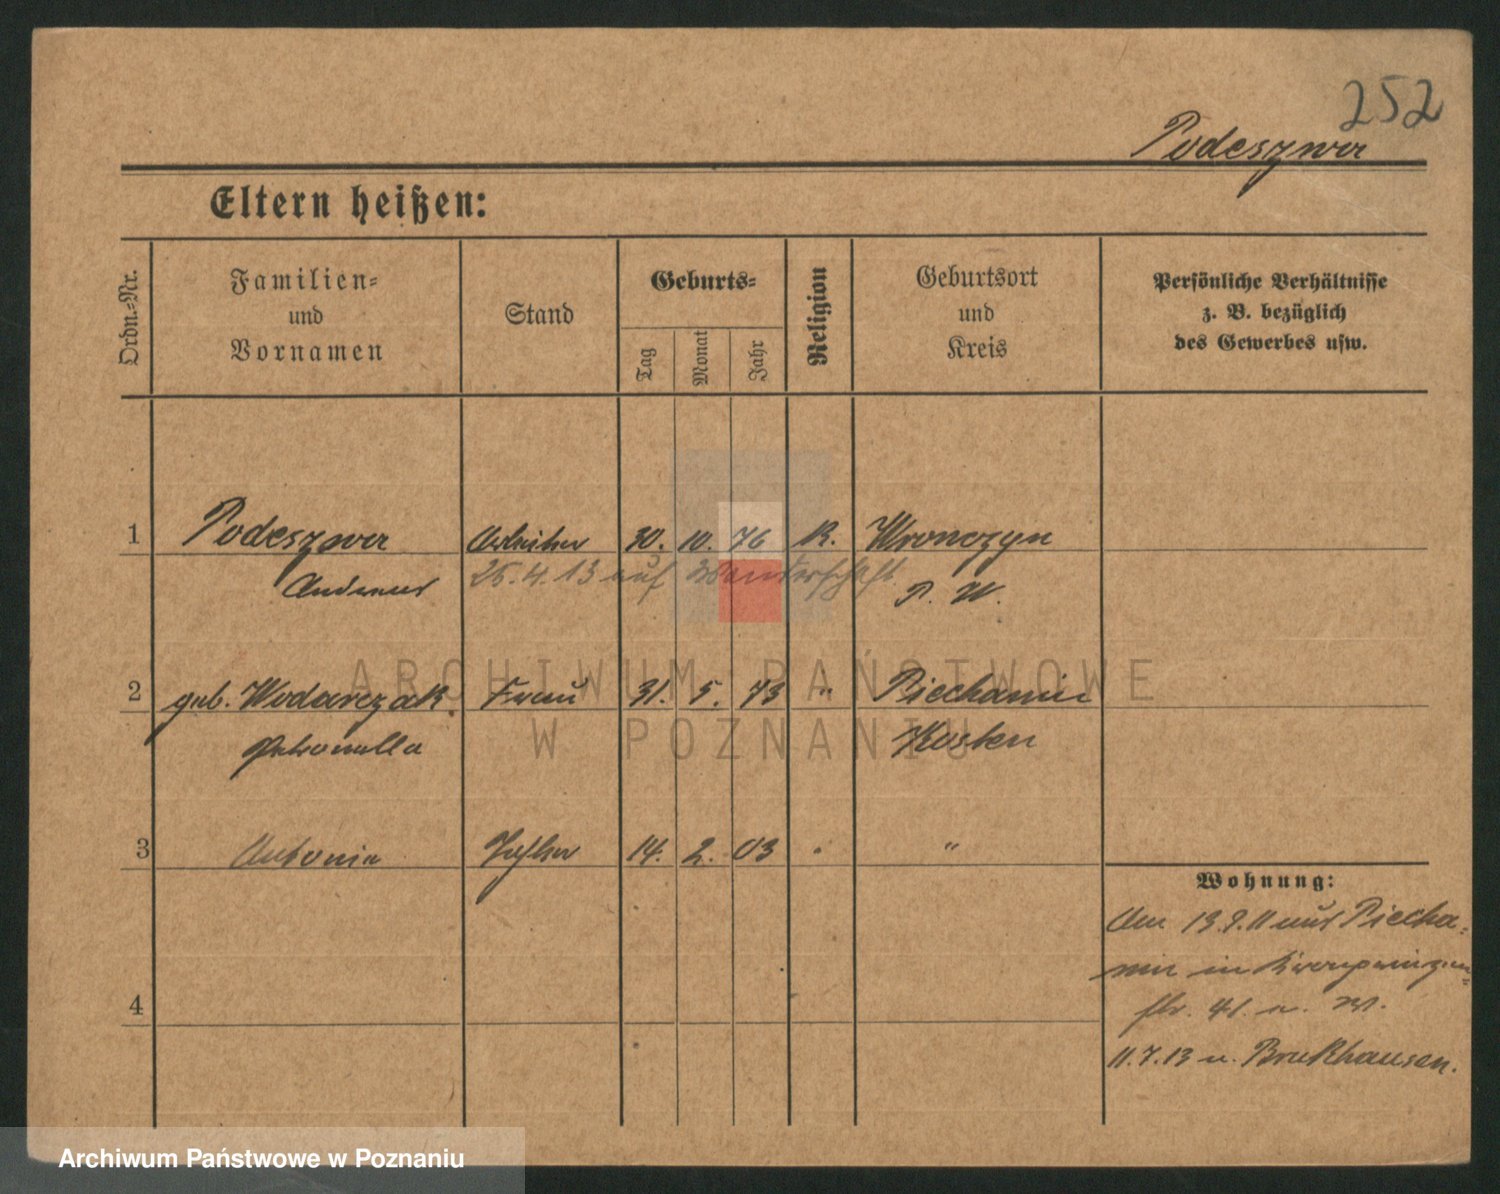 252
Podeszwa
Eltern heißen:
Ordn.-Nr.
Familien-
und
Vornamen
Stand
Geburts-
Tag
Monat
Jahr
Religion
Geburtsort
und
Kreis
Persönliche Verhältnisse
z. B. bezüglich
des Gewerbes usw.
1 Podeszwa Arbeiter 30. 10. 76 K. Wronczyn
Andreas 25.4.13 auf Wanderschaft P. W.
2 geb. Wodarczak Frau 31. 5. 73 " Piechanin
Petronella Kosten
3 Antonie Tochter 14. 2. 03 " "
Wohnung:
Am 13.9.11 aus Piecha-
nin in Kronprinzen-
str. 41. n. W.
4
11.7.13 n. Bruckhausen.
ARCHIWUM PAŃSTWOWE
W POZNANIU
Archiwum Państwowe w Poznaniu